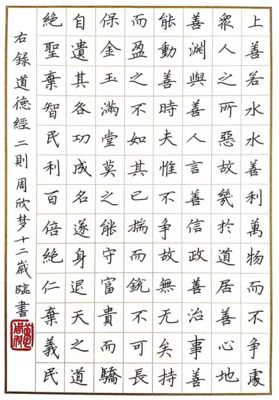 上善若水水善利萬物而不爭處
衆人之所惡故幾於道居善地心
善淵與善人言善信政善治事善
能動善時夫惟不爭故無尤矣持
而盈之不如其已揣而銳不可長
保金玉滿堂莫之能守富貴而驕
自遺其咎功成名遂身退天之道
絕聖棄智民利百倍絕仁棄義民
右錄道德經二則周欣梦十二歲臨書